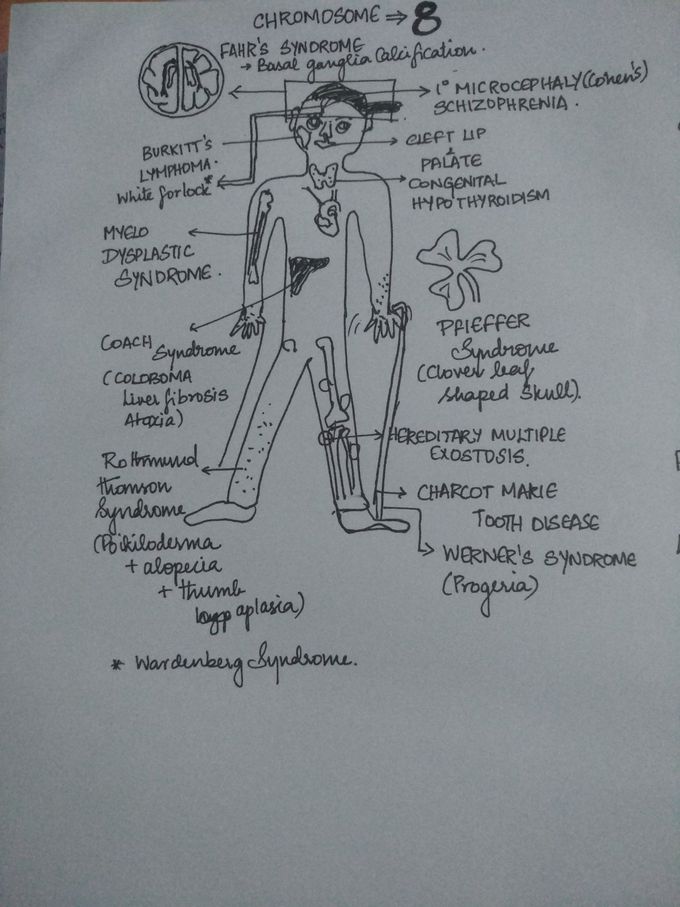 CHROMOSOME ⇒ 8
FAHR'S SYNDROME
→ Basal ganglia Calcification.
1° MICROCEPHALY (Cohen's)
SCHIZOPHRENIA.
BURKITT'S
LYMPHOMA.
White forlock*
CLEFT LIP
+
PALATE
CONGENITAL
HYPOTHYROIDISM
MYELO
DYSPLASTIC
SYNDROME.
COACH Syndrome
(COLOBOMA
Liver fibrosis
Ataxia)
PFIEFFER
Syndrome
(Clover leaf
shaped skull).
HEREDITARY MULTIPLE
EXOSTOSIS.
Rothmund
thomson
Syndrome
(Poikiloderma
+ alopecia
+ thumb
aplasia)
CHARCOT MARIE
TOOTH DISEASE
WERNER'S SYNDROME
(Progeria)
* Wardenberg Syndrome.